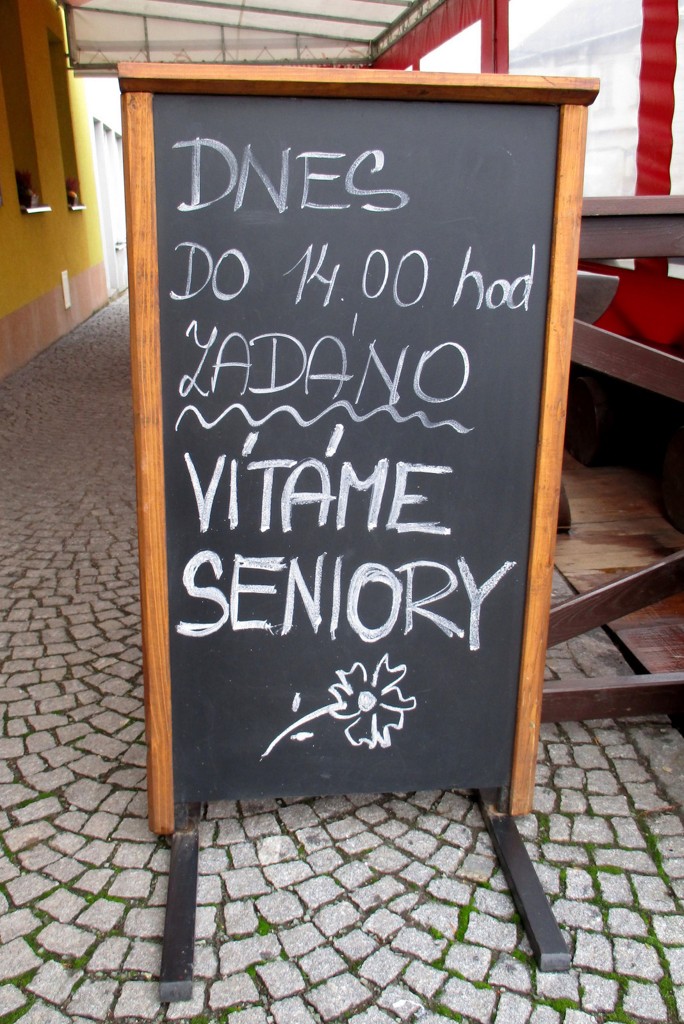 DNES
DO 14.00 hod
ZADÁNO
VÍTÁME
SENIORY